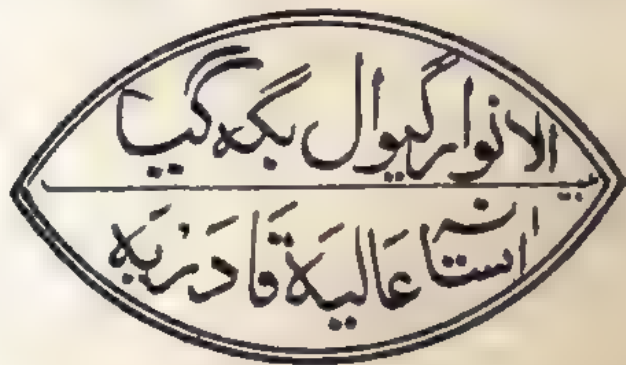 بیت الانوار گیوال بگہ گیا
آستانہ عَالیَہ قَادَرِیَہ